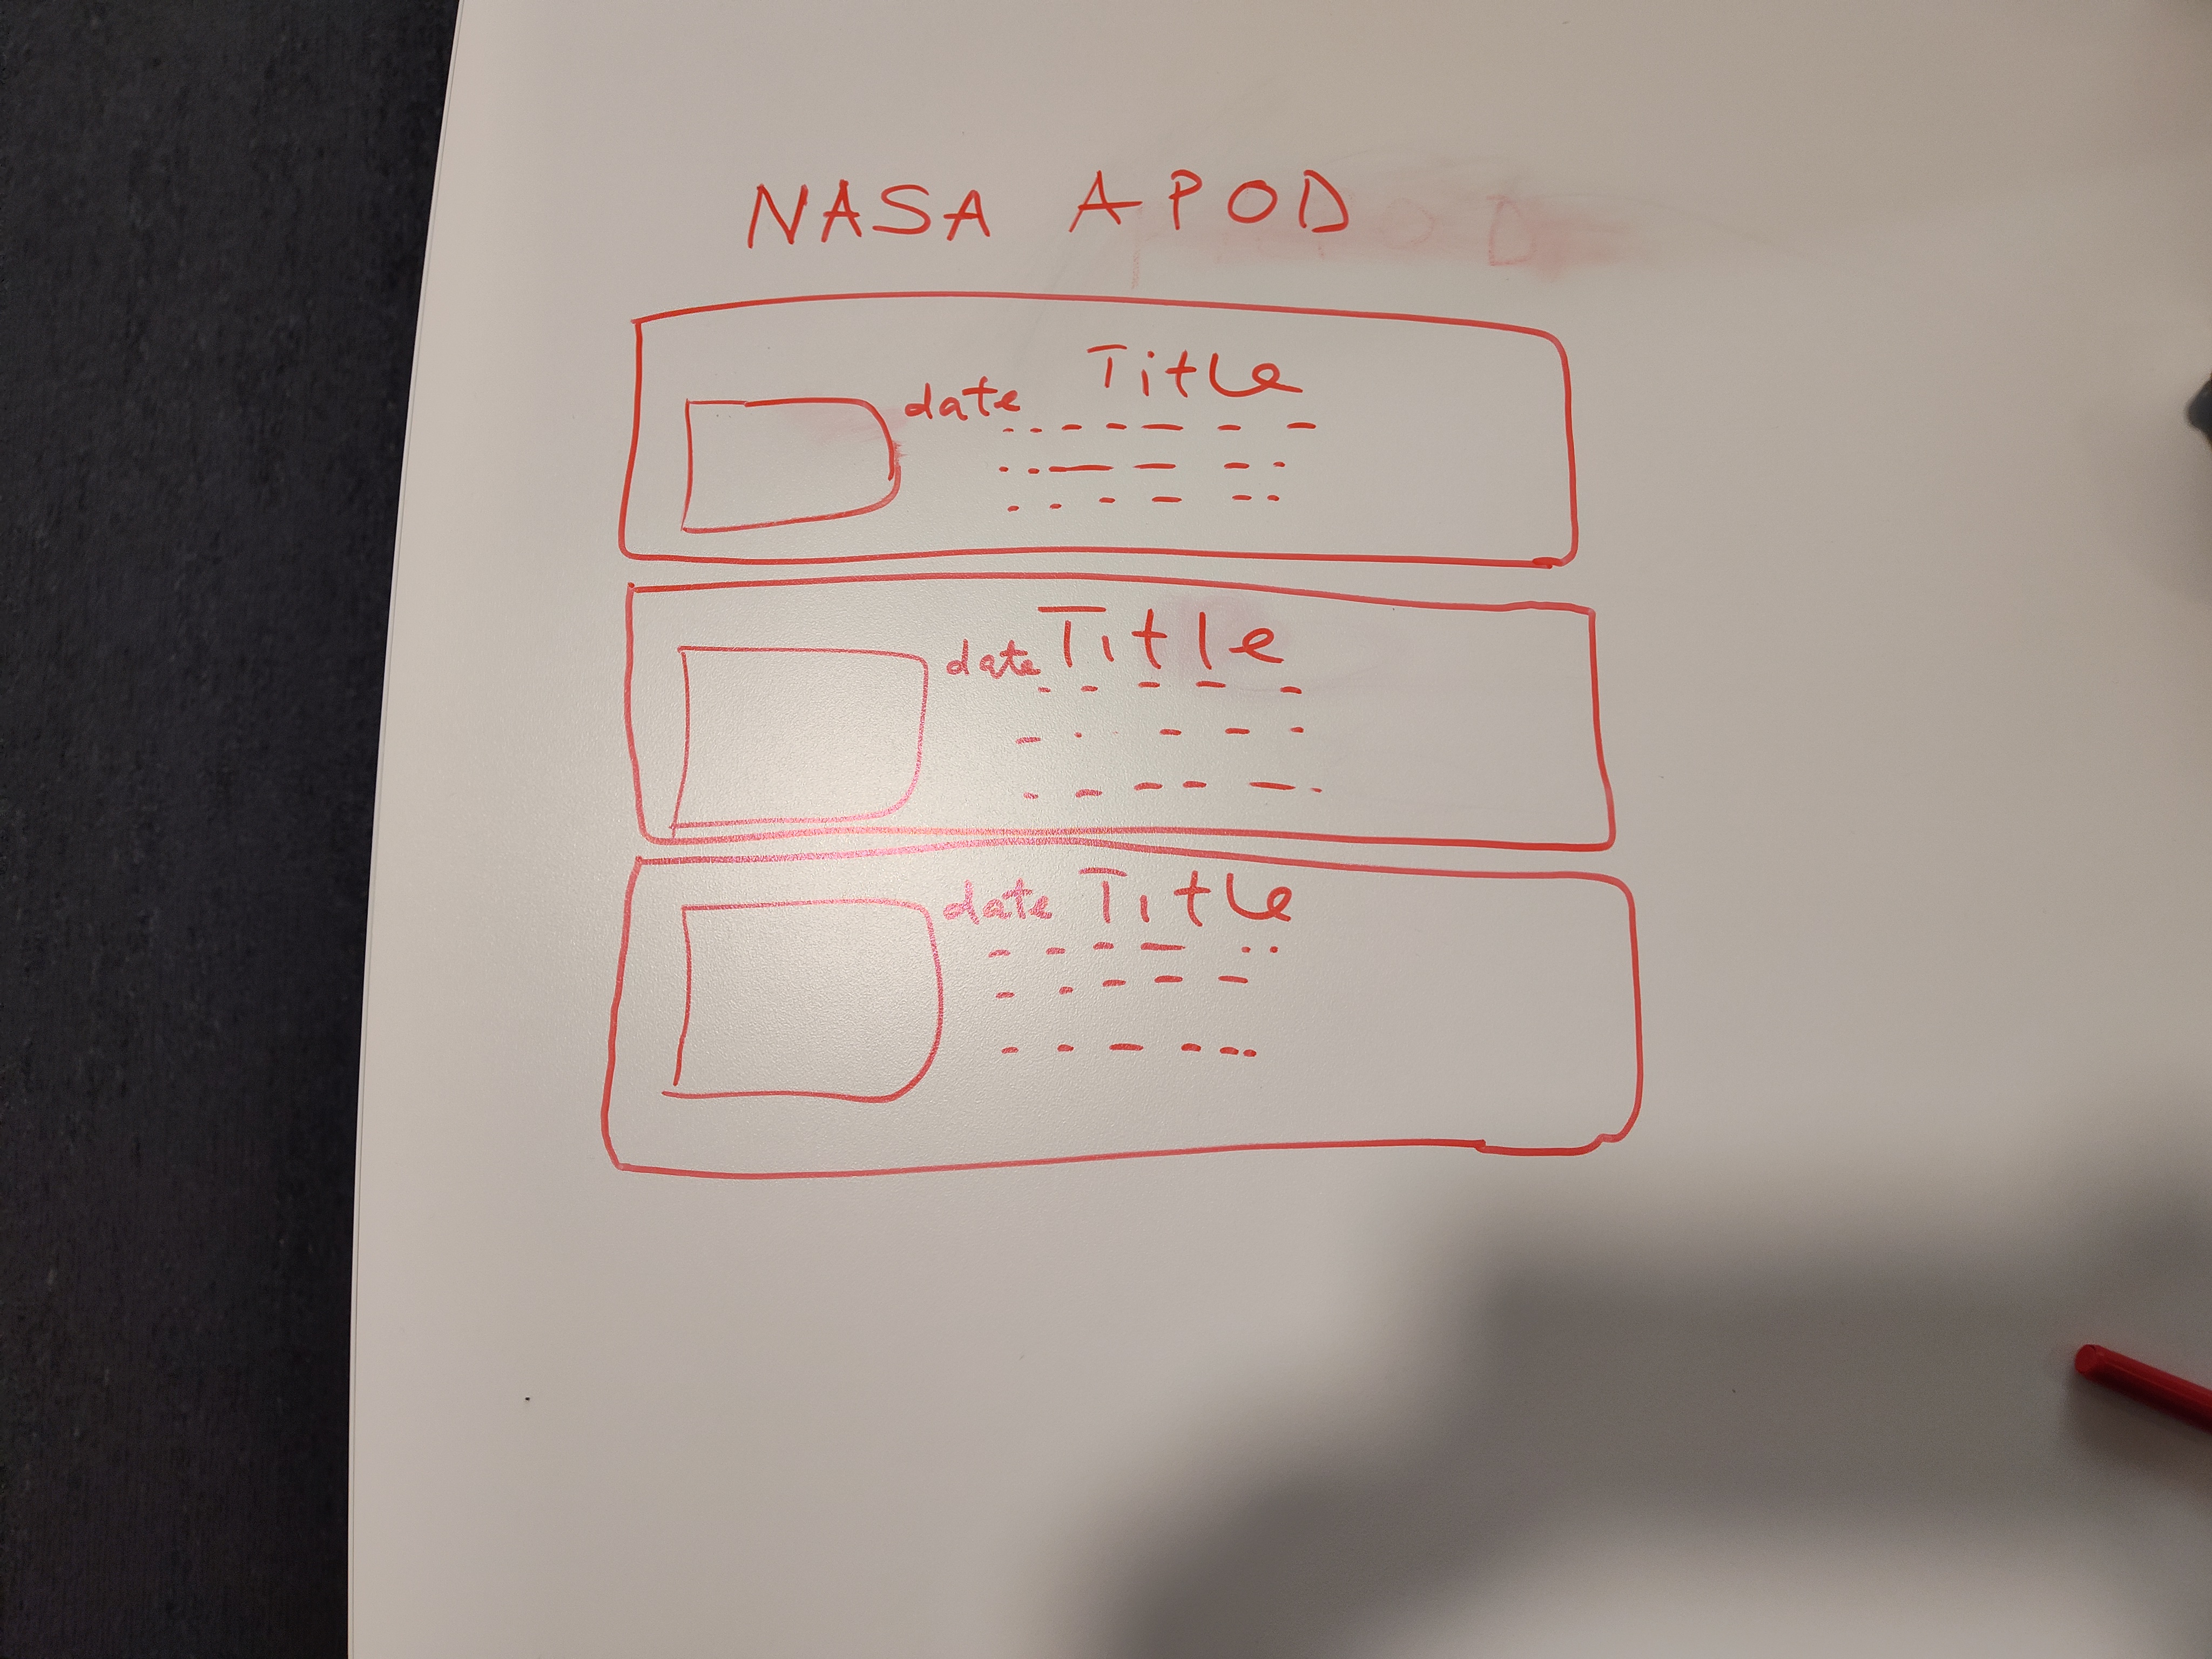 NASA APOD
date Title
date Title
date Title